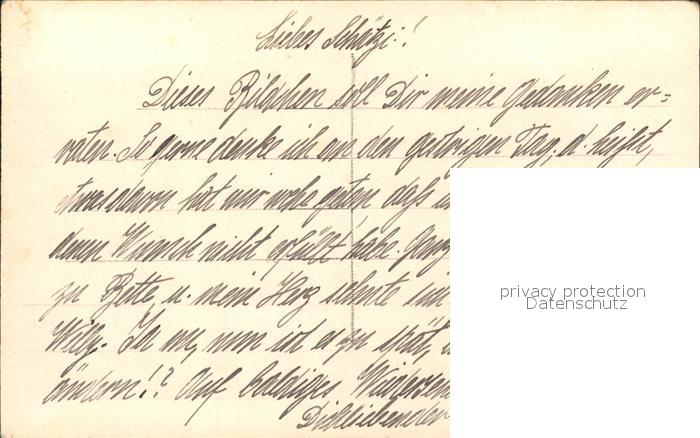 Liebes Schätzi!
Dieses Bildchen soll Dir meine Gedanken er=
raten. So gerne denke ich an den gestrigen Tag, d. heißt,
etwas davon hat mir wehe getan daß
deinen Wunsch nicht erfüllt habe. Ganz
zu Bette, u. mein Herz sehnte
Willy. Ja nu, nun ist es zu spät,
ändern!? Auf baldiges
Dichliebender
privacy protection
Datenschutz